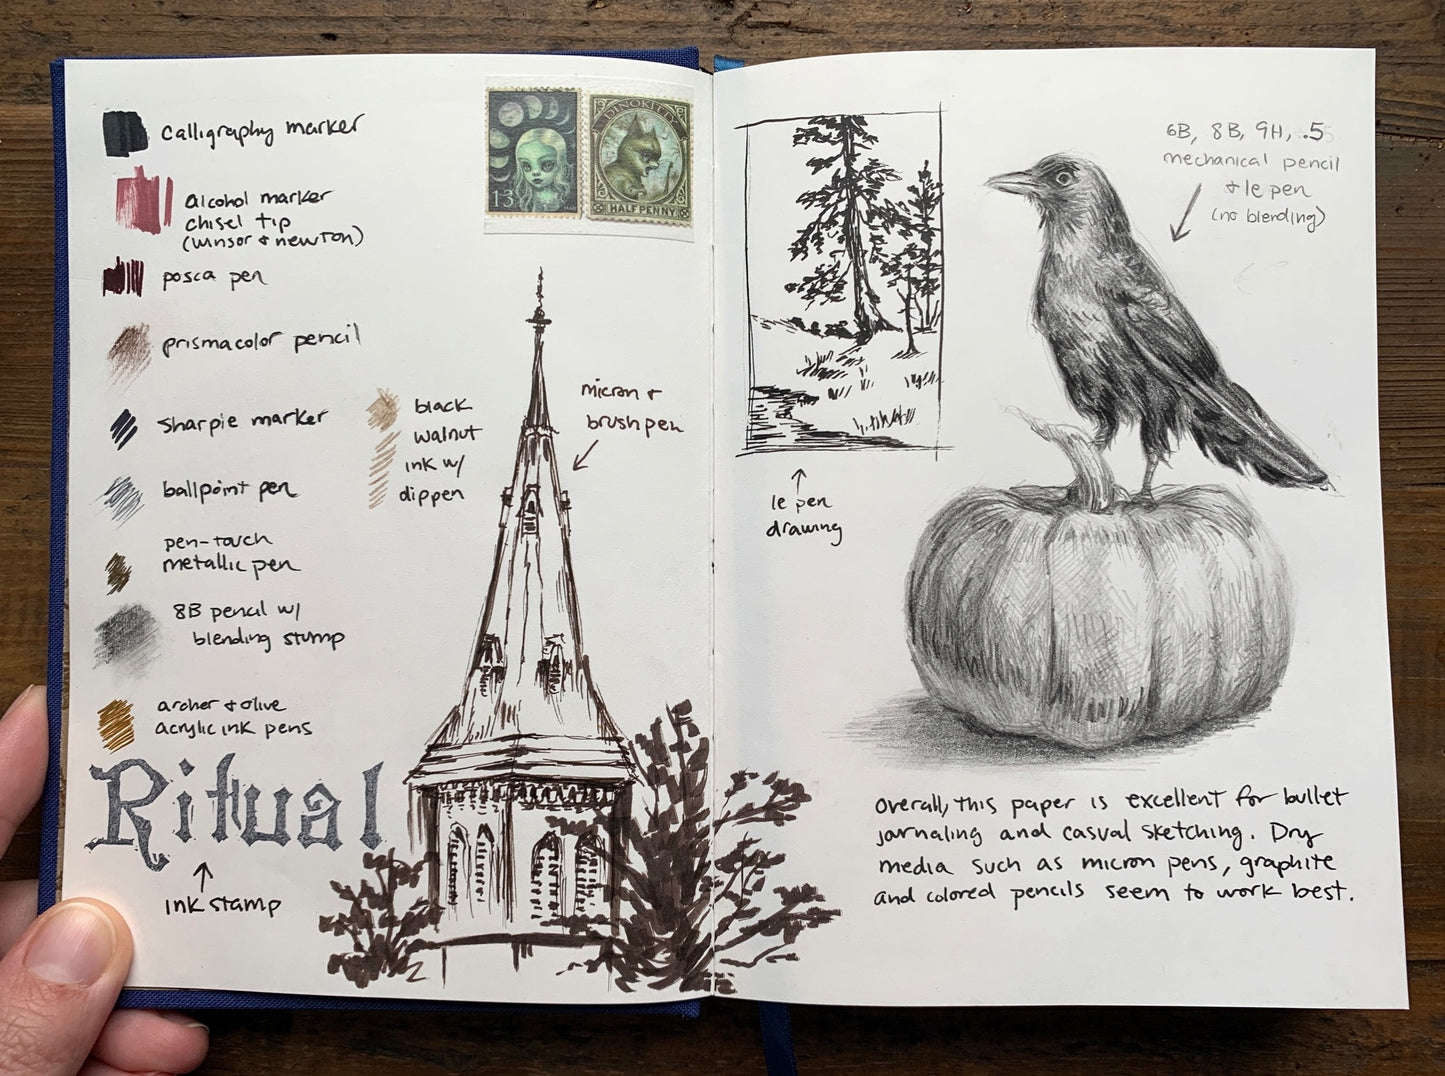 calligraphy marker
alcohol marker
chisel tip
(winsor & newton)
posca pen
prismacolor pencil
sharpie marker
ballpoint pen
pen-touch
metallic pen
8B pencil w/
blending stump
archer & olive
acrylic ink pens
Ritual
ink stamp
black
walnut
ink w/
dip pen
13
HALF PENNY
micron &
brush pen
le pen
drawing
6B, 8B, 9H, .5
mechanical pencil
& le pen
(no blending)
Overall, this paper is excellent for bullet
jornaling and casual sketching. Dry
media such as micron pens, graphite
and colored pencils seem to work best.